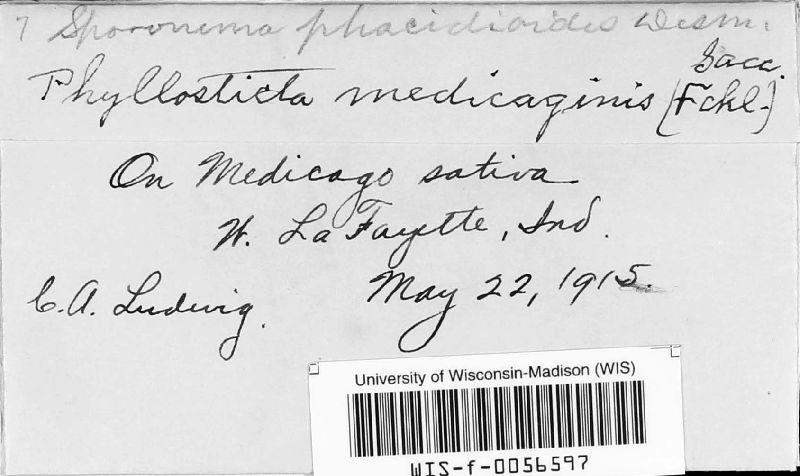 7 Sporonema phacidioides Desm.
Phyllosticta medicaginis (Fckl.) Sacc.
On Medicago sativa
W. LaFayette, Ind.
C.A. Ludwig. May 22, 1915.
University of Wisconsin-Madison (WIS)
WIS-f-0056597